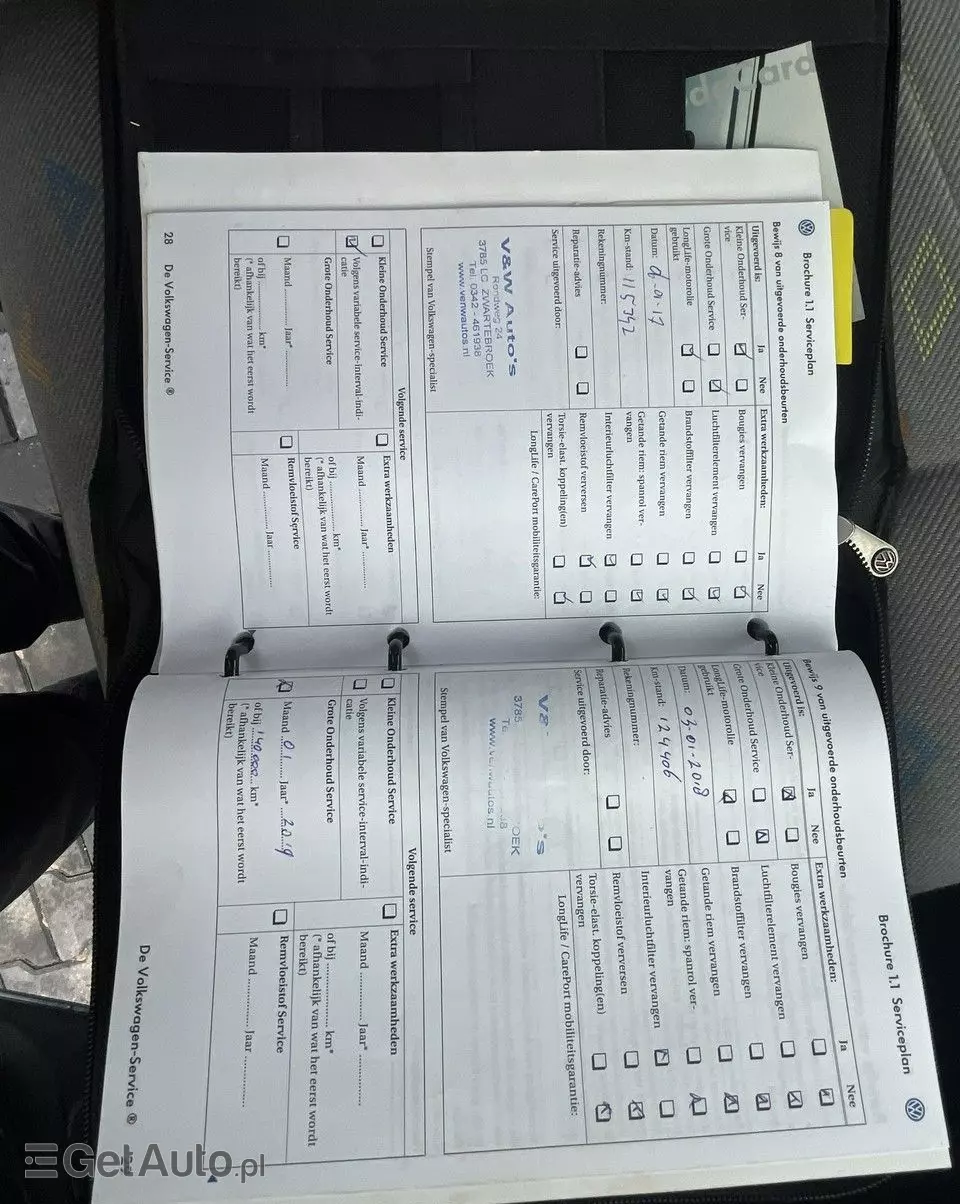 d Card
Brochure 1.1 Serviceplan
Bewijs 8 van uitgevoerde onderhoudsbeurten
Uitgevoerd is: Ja Nee
Kleine Onderhoud Ser-
vice
Grote Onderhoud Service
LongLife-motorolie
gebruikt
Datum: -01-17
Km-stand:
Rekeningnummer:
Reparatie-advies
Service uitgevoerd door:
V&W Auto's
Rondweg 24
3785 LG ZWARTEBROEK
Tel. 0342 - 461938
www.venwautos.nl
Stempel van Volkswagen-specialist
Extra werkzaamheden: Ja Nee
Bougies vervangen
Luchtfilterelement vervangen
Brandstoffilter vervangen
Getande riem vervangen
Getande riem: spanrol ver-
vangen
Interieurluchtfilter vervangen
Remvloeistof verversen
Torsie-elast. koppeling(en)
vervangen
LongLife / CarePort mobiliteitsgarantie:
Volgende service
Kleine Onderhoud Service
Volgens variabele service-interval-indi-
catie
Grote Onderhoud Service
Maand ............ Jaar* ............
of bij ............ km*
(* afhankelijk van wat het eerst wordt
bereikt)
Extra werkzaamheden
Maand ............ Jaar* ............
of bij ............ km*
(* afhankelijk van wat het eerst wordt
bereikt)
Remvloeistof Service
Maand ............ Jaar ............
28 De Volkswagen-Service ®
Brochure 1.1 Serviceplan
Bewijs 9 van uitgevoerde onderhoudsbeurten
Uitgevoerd is: Ja Nee
Kleine Onderhoud Ser-
vice
Grote Onderhoud Service
LongLife-motorolie
gebruikt
Datum: 03-01-2018
Km-stand: 124406
Rekeningnummer:
Reparatie-advies
Service uitgevoerd door:
3785
www.venwautos.nl
Stempel van Volkswagen-specialist
Extra werkzaamheden: Ja Nee
Bougies vervangen
Luchtfilterelement vervangen
Brandstoffilter vervangen
Getande riem vervangen
Getande riem: spanrol ver-
vangen
Interieurluchtfilter vervangen
Remvloeistof verversen
Torsie-elast. koppeling(en)
vervangen
LongLife / CarePort mobiliteitsgarantie:
Volgende service
Kleine Onderhoud Service
Volgens variabele service-interval-indi-
catie
Grote Onderhoud Service
Maand 01 Jaar* 2019
of bij 140.000 km*
(* afhankelijk van wat het eerst wordt
bereikt)
Extra werkzaamheden
Maand ............ Jaar* ............
of bij ............ km*
(* afhankelijk van wat het eerst wordt
bereikt)
Remvloeistof Service
Maand ............ Jaar ............
De Volkswagen-Service ®
GetAuto.pl